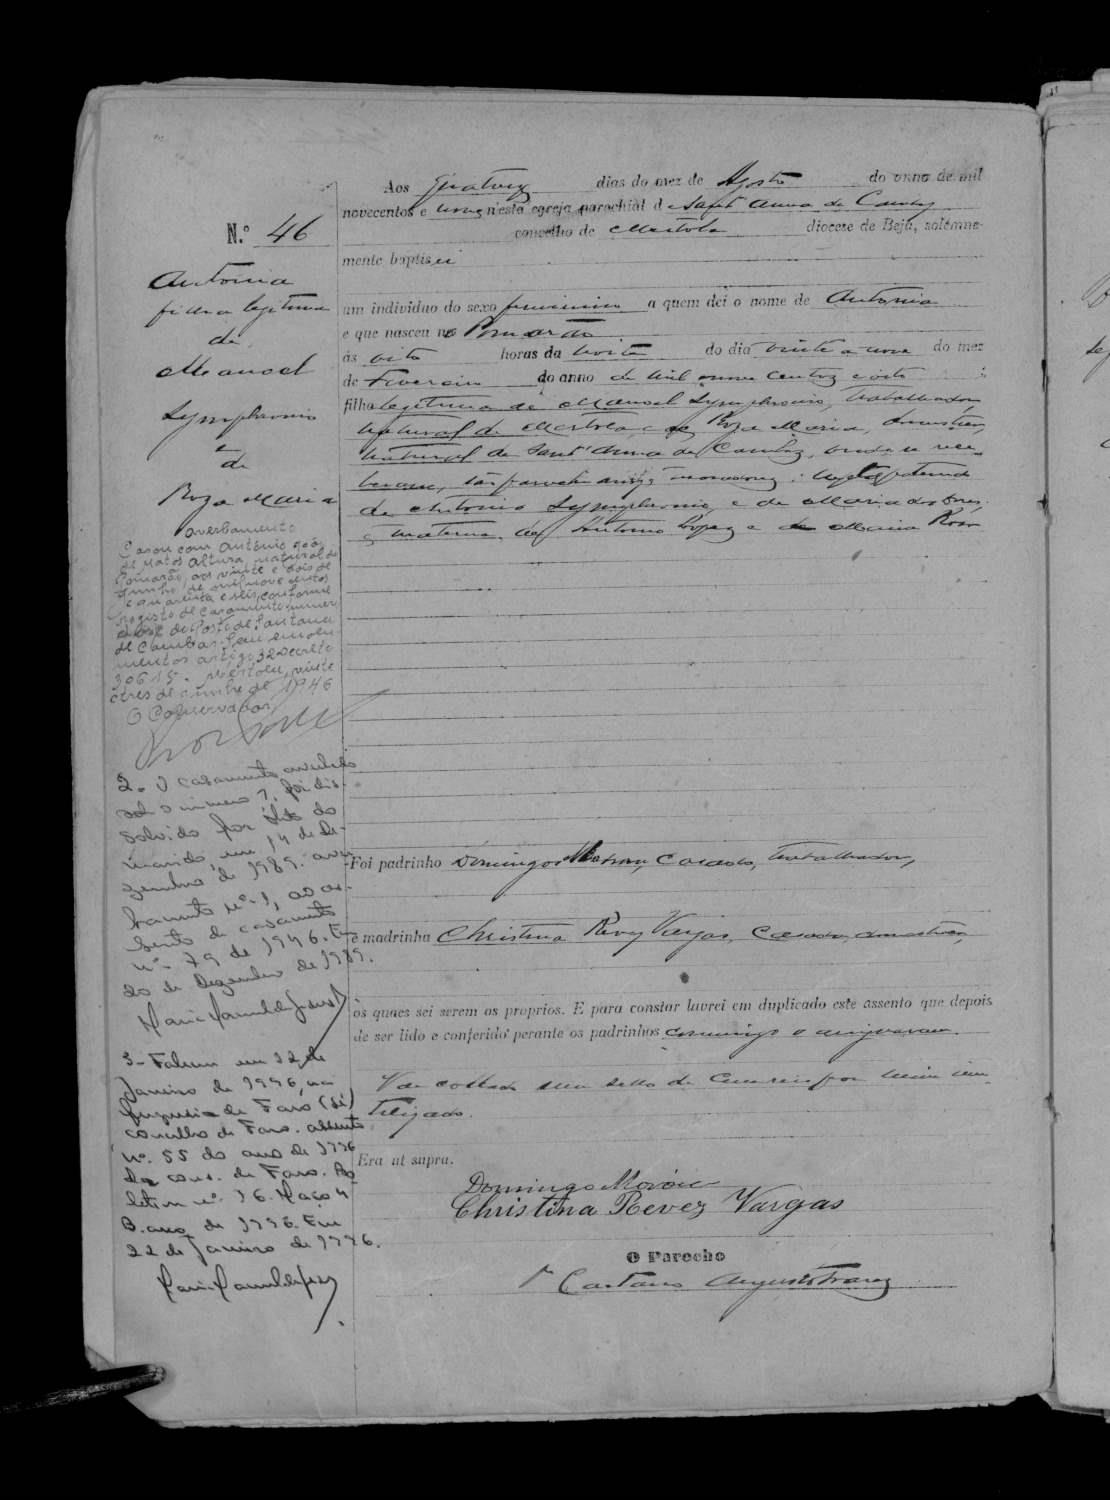 Aos quatorze dias do mez de Agosto do anno de mil
novecentos e nove, n'esta egreja parochial de Sant'Anna de Cambas
concelho de Mertola diocese de Beja, solemne-
mente baptisei
um individuo do sexo feminino a quem dei o nome de Antonia
e que nasceu no Pomarão
ás oito horas da noite do dia vinte e nove do mez
de Fevereiro do anno de mil nove centos e oito
filha legitima de Manoel Symphronio, trabalhador,
natural de Mertola, e de Roza Maria, domestica,
natural de Sant'Anna de Cambas, onde se rece-
beram, são parochianos e moradores: neta paterna
de Antonio Symphronio e de Maria das Dores,
e materna de Antonio Lopez e de Maria Rosa
N.º 46
Antonia
filha legitima
de
Manoel
Symphronio
e
de
Roza Maria
averbamento
Casou com António
de Matos Altura, natural de
Pomarão, aos vinte e dois de
Junho de mil nove centos
e quarenta e seis, conforme
registo de casamento numero
do Posto de Santana
de Cambas. Sem emolu-
mentos artigo 32 Decreto
30615. Mértola, vinte
e tres de Junho de 1946
O Conservador,
2- O casamento averbado
sob o número 1, foi dis-
solvido por óbito do
marido, em 14 de De-
zembro de 1989. aver-
bamento nº-1, ao as-
sento de casamento
nº- 79 de 1946. Em
de Dezembro de 1989.
3- Faleceu em 12 de
Janeiro de 1996, na
freguesia de Faro (Sé)
concelho de Faro. assento
nº. 55 do ano de 1996
da cons. de Faro. Bo
letim nº. 16. Maço 4
B. ano de 1996. Em
22 de Janeiro de 1996.
Foi padrinho Domingos casado, trabalhador,
e madrinha Christina Revez Vargas, casada, domestica,
os quaes sei serem os proprios. E para constar lavrei em duplicado este assento que depois
de ser lido e conferido perante os padrinhos commigo o assignaram.
Vae collado um sello de cem reis por mim inu-
tilizado.
Era ut supra.
Domingos
Christina Revez Vargas
O Parocho
Caetano Augusto